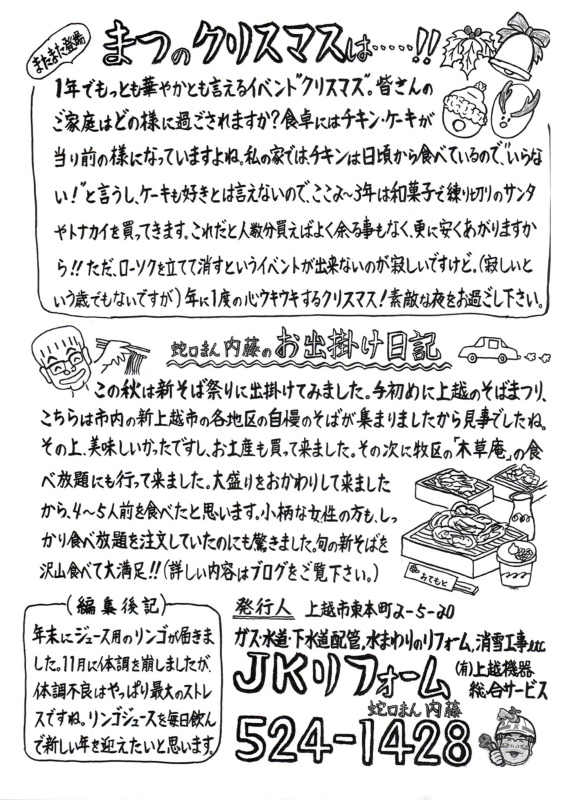 またまた登場
まつのクリスマスは……!!
1年でもっとも華やかとも言えるイベント"クリスマス"。皆さんの
ご家庭はどの様に過ごされますか?食卓にはチキン・ケーキが
当り前の様になっていますよね。私の家では、チキンは日頃から食べているので、"いらな
い!"と言うし、ケーキも好きとは言えないので、ここ2~3年は和菓子で練り切りのサンタ
やトナカイを買ってきます。これだと人数分買えばよく余る事もなく、更に安くあがりますか
ら!!ただ、ローソクを立てて消すというイベントが出来ないのが寂しいですけど。(寂しいと
いう歳でもないですが)年に1度の心ウキウキするクリスマス!素敵な夜をお過ごし下さい。
蛇口まん内藤のお出掛け日記
この秋は新そば祭りに出掛けてみました。手初めに上越のそばまつり、
こちらは市内の新上越市の各地区の自慢のそばが集まりましたから見事でしたね。
その上、美味しいかったですし、お土産も買って来ました。その次に牧区の「木草庵」の食
べ放題にも行って来ました。大盛りをおかわりして来ました
から、4~5人前を食べたと思います。小柄な女性の方も、しっ
かり食べ放題を注文していたのにも驚きました。旬の新そばを
沢山食べて大満足!!(詳しい内容はブログをご覧下さい。)
おてもと
(編集後記)
年末にジュース用のリンゴが届きま
した。11月に体調を崩しましたが、
体調不良はやっぱり最大のストレ
スですね。リンゴジュースを毎日飲ん
で新しい年を迎えたいと思います。
発行人 上越市東本町2-5-20
ガス・水道・下水道配管,水まわりのリフォーム,消雪工事etc
JKリフォーム (有)上越機器
総合サービス
蛇口まん 内藤
524-1428